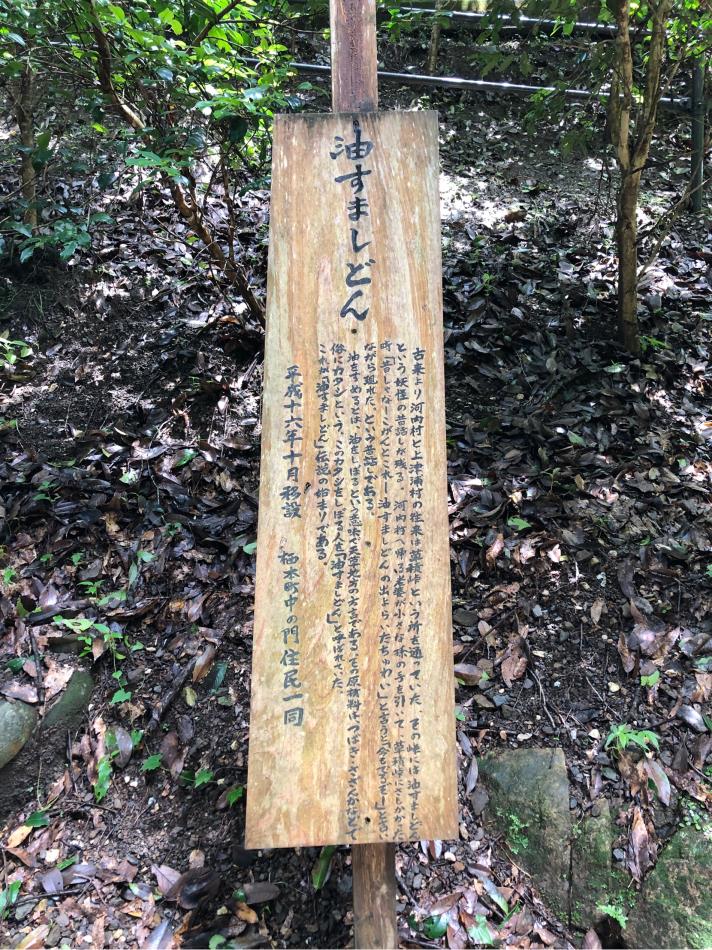 油すましどん
古来より河内村と上津浦村の往来は草積峠という所を通っていた。その峠には油すましどん
という妖怪の昔話が残る。河内村へ帰る老婆が小さな孫の手を引いて、草積峠にさしかかった
時「昔しゃなーこがんところし、油すましどんの出よらいたちゅわい」と言うと「今もでるぞー」と言い
ながら現れた、という昔話である。
油をすめるとは、油をしぼるという意味で天草地方の方言である。その原材料は、つばき・ささくかなどで
俗にカタシという。このカタシをしぼる人を「油すましどん」と呼ばれていた。
これが「油すましどん」伝説の始まりである。
平成十六年十月移設　栖本町中の門住民一同